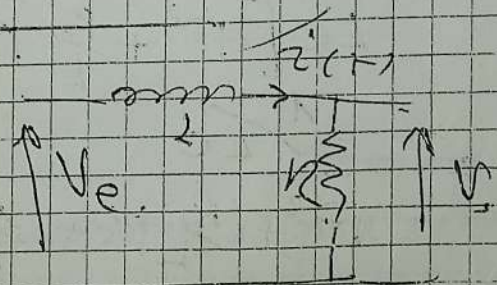 i(t)
L
Ve
R
Vs